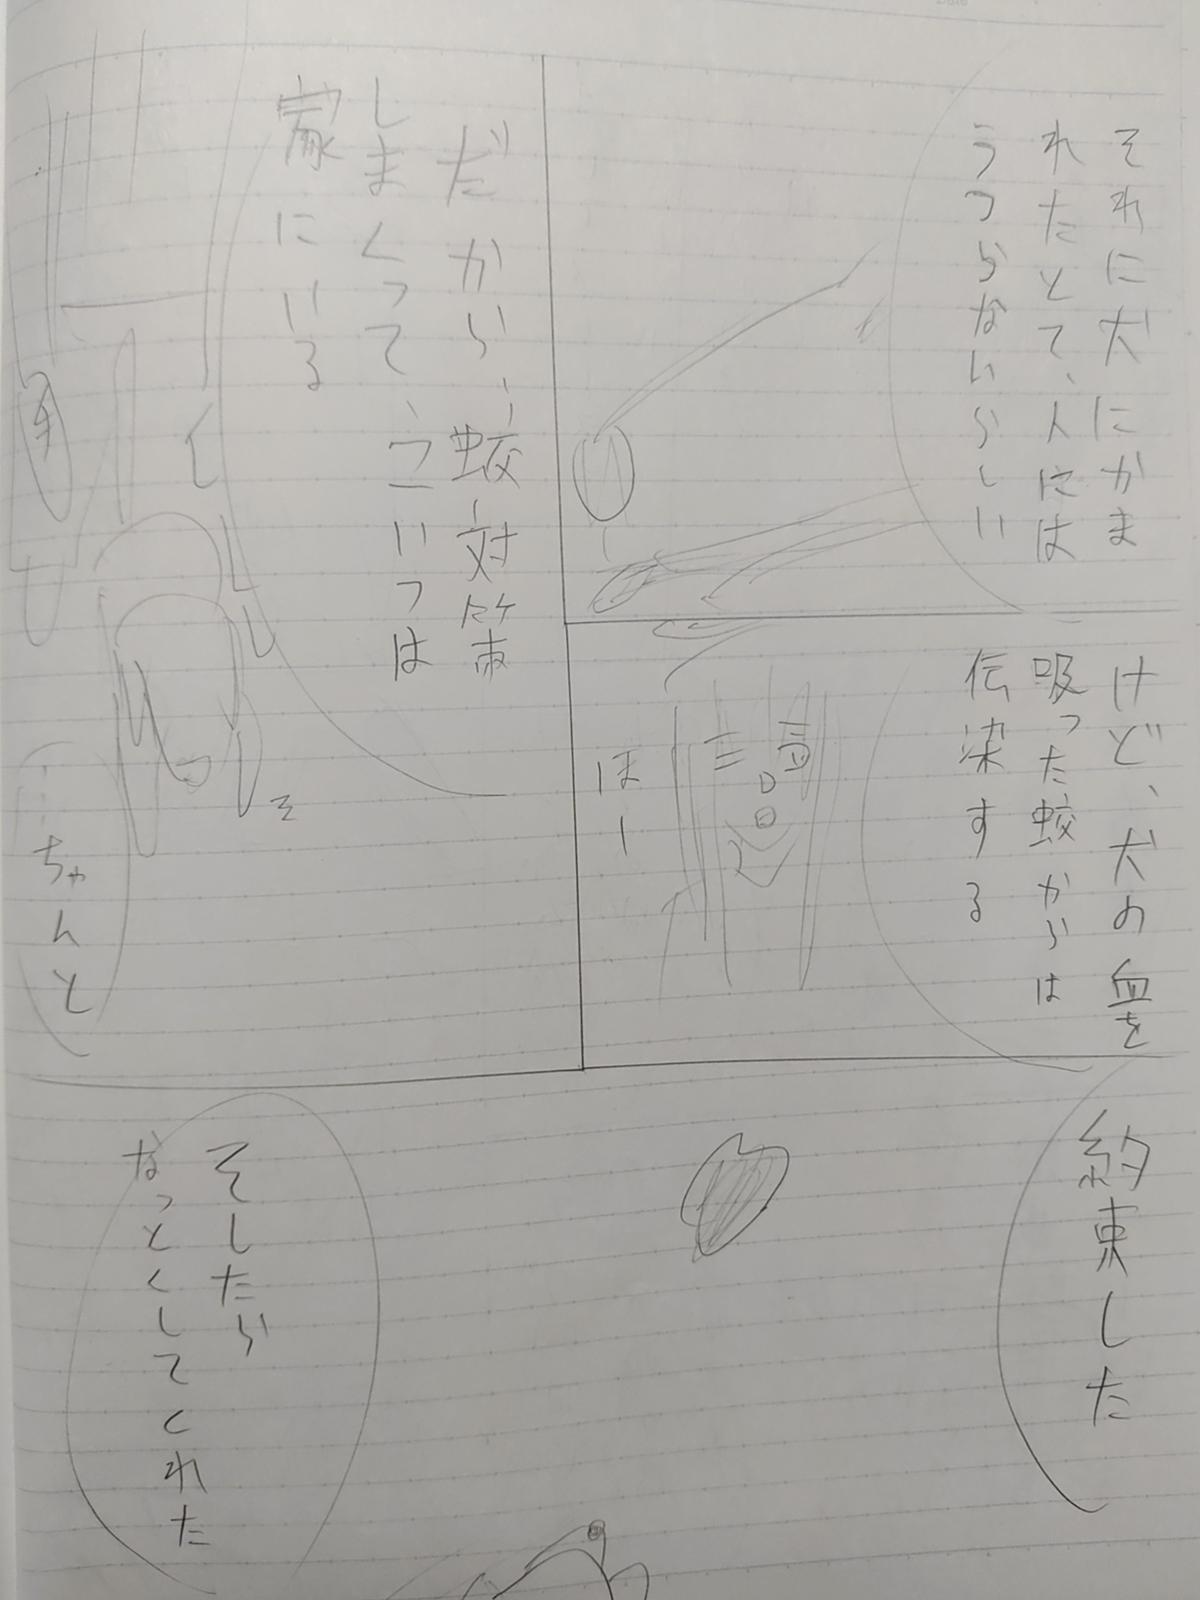 それに犬にかま
れたとて、人には
うつらないらしい
けど、犬の血を
吸った蚊からは
伝染する
ほー
だから、蚊対策
しまくって、こいつは
家にいる
そ
ちゃんと
約束した
そしたら
なっとくしてくれた